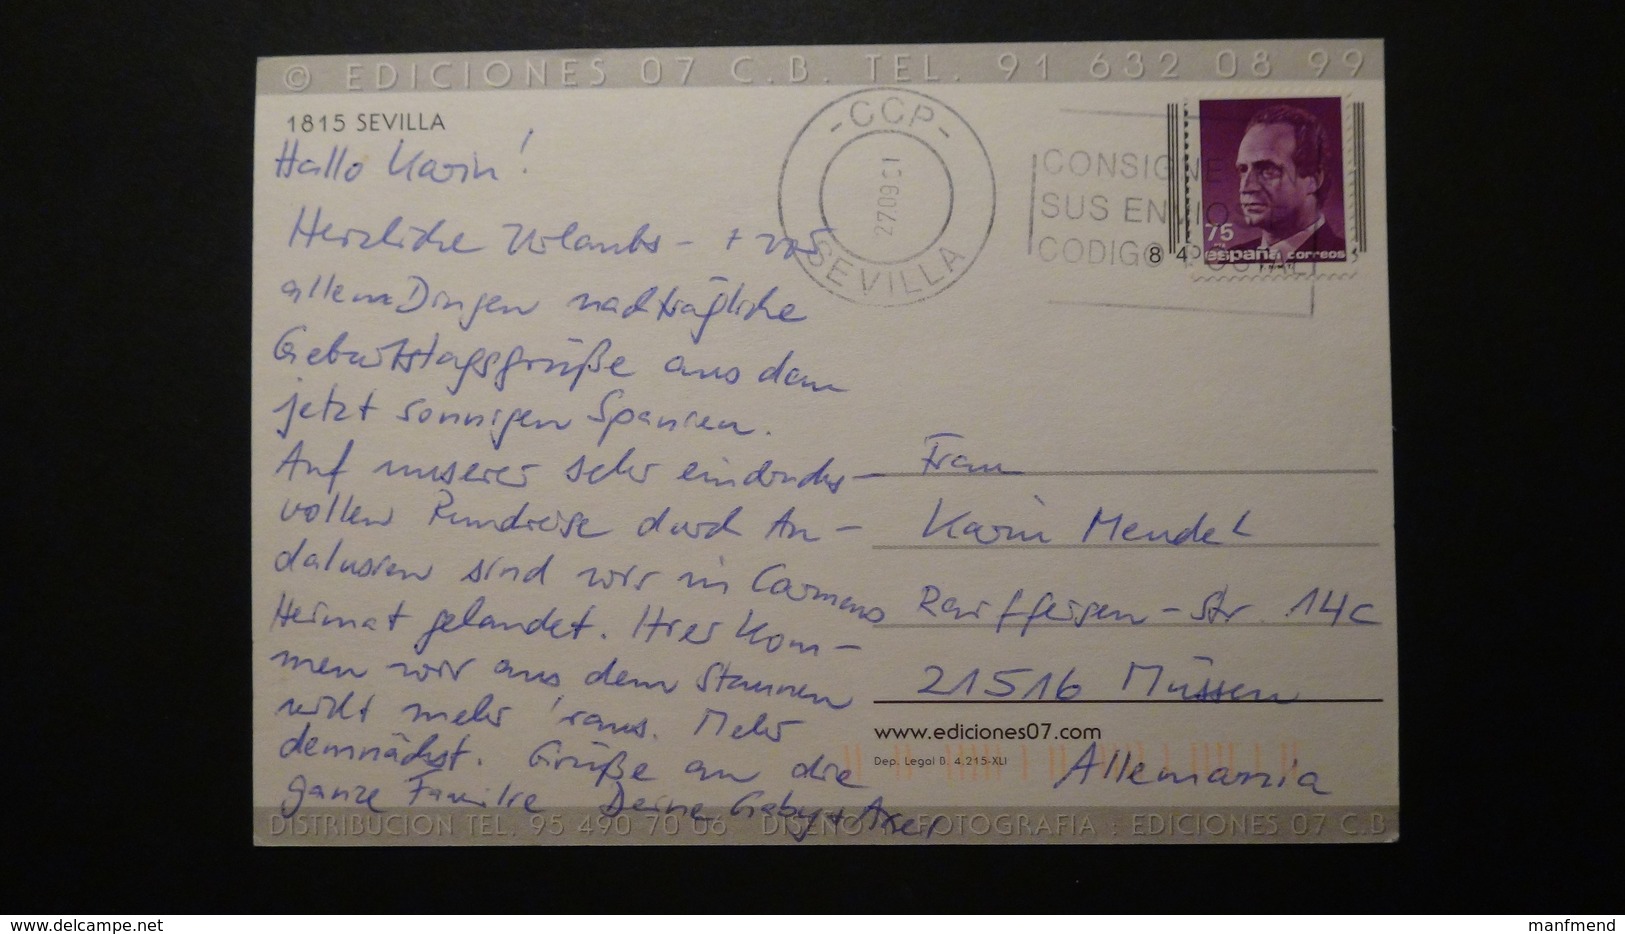 © EDICIONES 07 C.B. TEL. 91 632 08 99
1815 SEVILLA
Hallo Karin!
Herzliche Urlaubs- + vor
allem Dingen nachträgliche
Geburtstagsgrüße aus dem
jetzt sonnigen Spanien.
Auf unserer sehr eindrucks-
vollen Rundreise durch An-
dalusien sind wir in Carmens
Heimat gelandet. Hier kom-
men wir aus dem Staunen
nicht mehr 'raus. Mehr
demnächst. Grüße an die
ganze Familie Deine Gaby + Axel
-CCP-
27 09 01
SEVILLA
CONSIGNE
SUS ENVIO
CODIGO POSTAL
75
8 4
españa correos
Frau
Karin Mendel
Raiffeisen-Str. 14c
21516 Müssen
Allemania
www.ediciones07.com
Dep. Legal B. 4.215-XLI
DISTRIBUCION TEL. 95 490 70 06 DISEÑO Y FOTOGRAFIA : EDICIONES 07 C.B
www.delcampe.net
manfmend